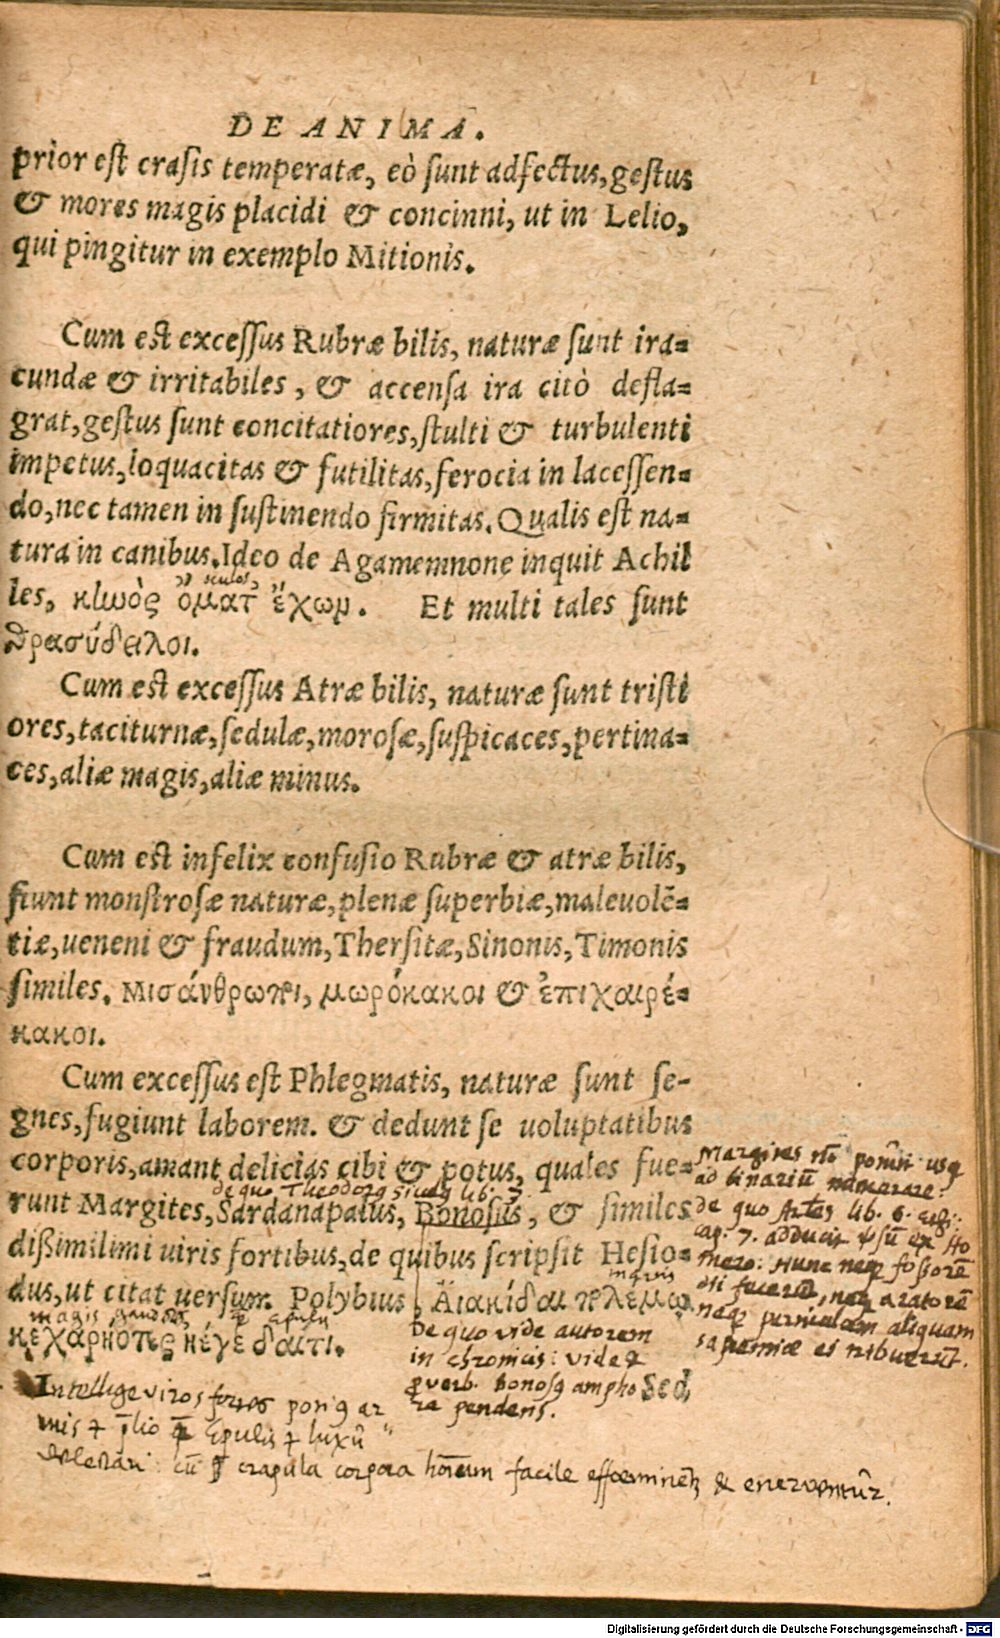 DE ANIMA.
prior est crasis temperatæ, eò sunt adfectus, gestus
& mores magis placidi & concinni, ut in Lelio,
qui pingitur in exemplo Mitionis.
Cum est excessus Rubræ bilis, naturæ sunt ira-
cundæ & irritabiles, & accensa ira citò defla-
grat, gestus sunt concitatiores, stulti & turbulenti
impetus, loquacitas & futilitas, ferocia in lacessen-
do, nec tamen in sustinendo firmitas. Qualis est na-
tura in canibus. Ideo de Agamemnone inquit Achil
oculos,
les, κυνὸς ὄματ' ἔχων. Et multi tales sunt
θρασύδειλοι.
Cum est excessus Atræ bilis, naturæ sunt tristi
ores, taciturnæ, sedulæ, morosæ, suspicaces, pertina-
ces, aliæ magis, aliæ minus.
Cum est infelix confusio Rubræ & atræ bilis,
fiunt monstrosæ naturæ, plenæ superbiæ, maleuolẽ-
tiæ, ueneni & fraudum, Thersitæ, Sinonis, Timonis
similes. Μισάνθρωποι, μωρόκακοι & ἐπιχαιρέ-
κακοι.
Cum excessus est Phlegmatis, naturæ sunt se-
gnes, fugiunt laborem. & dedunt se uoluptatibus
corporis, amant delicias cibi & potus, quales fue-
de quo lib.
runt Margites, Sardanapalus, Bonosus, & similes
dißimilimi uiris fortibus, de quibus scripsit Hesio-
dus, ut citat uersum Polybius, Αἰακίδαι πολέμῳ
magis
κεχαρηότες ἠύτε δαιτί.
Sed
Margites
de quo lib. 6.
cap. 7. adducit ex Ho
mero: Hunc neq fossorẽ
dii fecerũt, neq aratorẽ
aliquam
De quo vide autorem
in chronicis: vide &
Bonosq ampho
ra pendens.
Intellige viros fortes
crapula corpora facile &
Digitalisierung gefördert durch die Deutsche Forschungsgemeinschaft - DFG